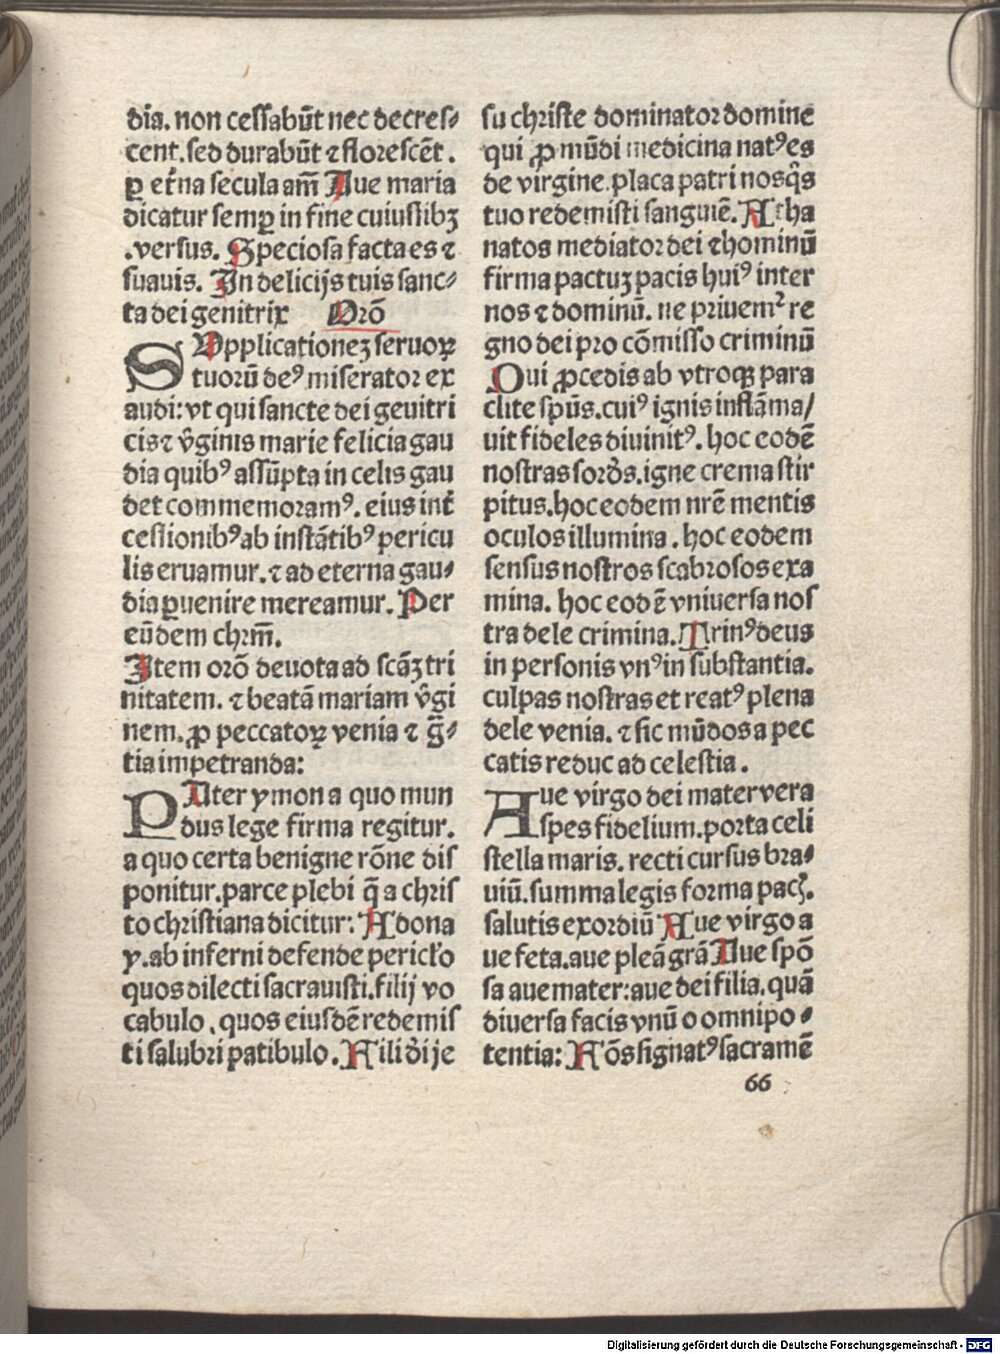 dia. non cessabūt nec decres⸗
cent. sed durabūt ⁊ florescēt.
ꝑ et̄na secula am̄ Aue maria
dicatur semꝑ in fine cuiuslibꝫ
.versus. Speciosa facta es ⁊
suauis. In delicijs tuis sanc⸗
ta dei genitrix Orō
SUpplicationeꝫ seruoꝝ
tuorū deꝰ miserator ex
audi: vt qui sancte dei geuitri
cis ⁊ v̄ginis marie felicia gau
dia quibꝰ assūpta in celis gau
det commemoramꝰ. eius int̄
cessionibꝰ ab instātibꝰ pericu
lis eruamur. ⁊ ad eterna gau⸗
dia ꝑuenire mereamur. Per
eūdem chrm̄.
Item orō deuota ad scāꝫ tri
nitatem. ⁊ beatā mariam v̄gi
nem. ꝓ peccatoꝝ venia ⁊ gr̄⸗
tia impetranda:
PAter ymon a quo mun
dus lege firma regitur.
a quo certa benigne rōne dis
ponitur. parce plebi q̄ a chris
to christiana dicitur: Adona
y. ab inferni defende pericl̄o
quos dilecti sacrauisti. filij vo
cabulo. quos eiusdē redemis
ti salubri patibulo. Fili dīi je
su christe dominator domine
qui ꝓ mūdi medicina natꝰ es
de virgine. placa patri nos q̄s
tuo redemisti sanguiē. Atha
natos mediator dei ⁊ hominū
firma pactuꝫ pacis huiꝰ inter
nos ⁊ dominū. ne priuemᷣ re
gno dei pro cōmisso criminū
Qui ꝓcedis ab vtroqꝫ para
clite spūs. cuiꝰ ignis inflāma/
uit fideles diuinitꝰ. hoc eodē
nostras sordes. igne crema stir
pitus. hoc eodem nrē mentis
oculos illumina. hoc eodem
sensus nostros scabrosos exa
mina. hoc eodē vniuersa nos
tra dele crimina. Trinꝰ deus
in personis vnꝰ in substantia.
culpas nostras et reatꝰ plena
dele venia. ⁊ sic mūdos a pec
catis reduc ad celestia.
Aue virgo dei mater vera
spes fidelium. porta celi
stella maris. recti cursus bra⸗
uiū. summa legis forma pac̄.
salutis exordiū Aue virgo a
ue feta. aue pleā grā Aue spō
sa aue mater: aue dei filia. quā
diuersa facis vnū o omnipo⸗
tentia: Fōs signatꝰ sacramē
66
Digitalisierung gefördert durch die Deutsche Forschungsgemeinschaft - DFG